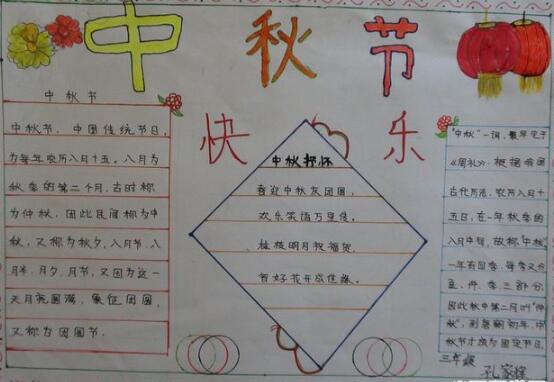 中秋节
快乐
中秋节
中秋节，中国传统节日，
为每年农历八月十五。八月为
秋季的第二个月，古时称
为仲秋，因此民间称为中
秋，又称为秋夕，八月节，八
月半，月夕，月节，又因为这一
天月亮圆满，象征团圆，
又称为团圆节.
中秋抒怀
喜迎中秋庆团圆，
欢乐笑语万里传。
桂枝明月祝福贺，
智好花开成佳缘。
"中秋"一词，最早见于
《周礼》. 根据我国
古代历法，农历八月十
五日，在一年秋季的
八月中旬，故称"中秋"
一年有四季，每季又分
孟、仲、季三部分，
因此秋中第二月叫"仲
秋"，到唐朝初年，中
秋节才成为固定节日。
三年级
孔家